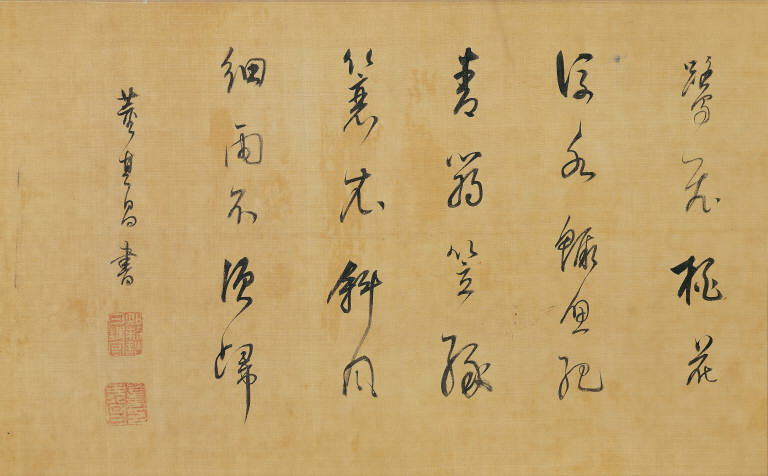 鷺飛桃花
流水鱖魚肥
青箬笠綠
簑衣斜風
細雨不須歸
董其昌書